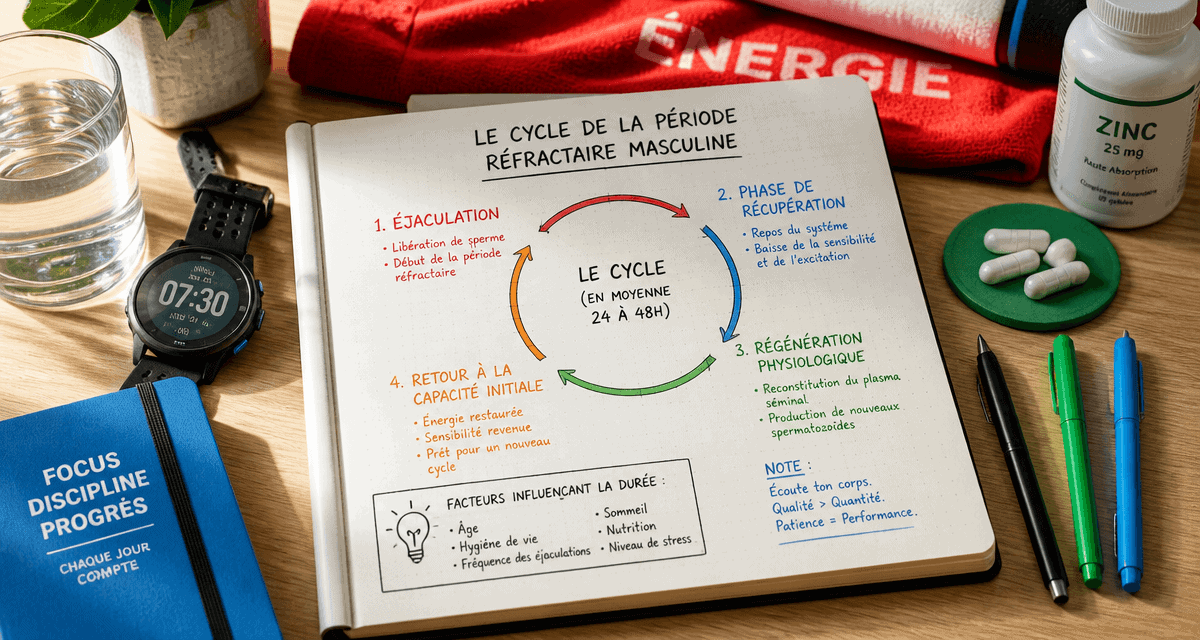 ÉNERGIE
LE CYCLE DE LA PÉRIODE
RÉFRACTAIRE MASCULINE
1. ÉJACULATION
• Libération de sperme
• Début de la période
réfractaire
2. PHASE DE
RÉCUPÉRATION
• Repos du système
• Baisse de la sensibilité
et de l'excitation
LE CYCLE
(EN MOYENNE
24 À 48H)
3. RÉGÉNÉRATION
PHYSIOLOGIQUE
• Reconstitution du plasma
séminal
• Production de nouveaux
spermatozoïdes
4. RETOUR À LA
CAPACITÉ INITIALE
• Énergie restaurée
• Sensibilité revenue
• Prêt pour un nouveau
cycle
FACTEURS INFLUENÇANT LA DURÉE :
• Âge
• Hygiène de vie
• Fréquence des éjaculations
• Sommeil
• Nutrition
• Niveau de stress
NOTE :
Écoute ton corps.
Qualité > Quantité.
Patience = Performance.
ZINC
25 mg
Haute Absorption
Complément Alimentaire
gélules
07:30
FOCUS
DISCIPLINE
PROGRÈS
CHAQUE JOUR
COMPTE